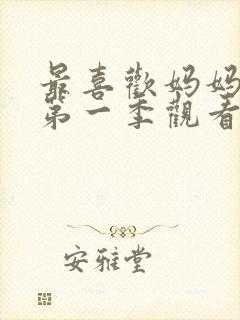 最喜歡媽媽
第一季觀看
安雅堂